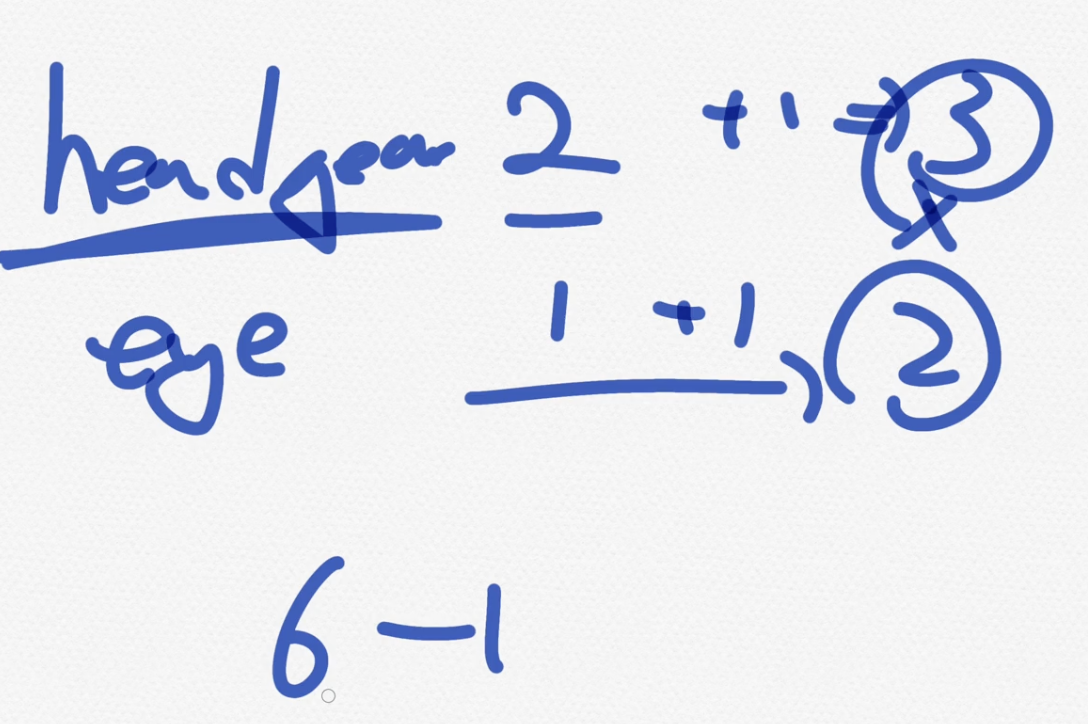 headgear 2 + 1 = 3
x
eye 1 + 1 2
6 - 1